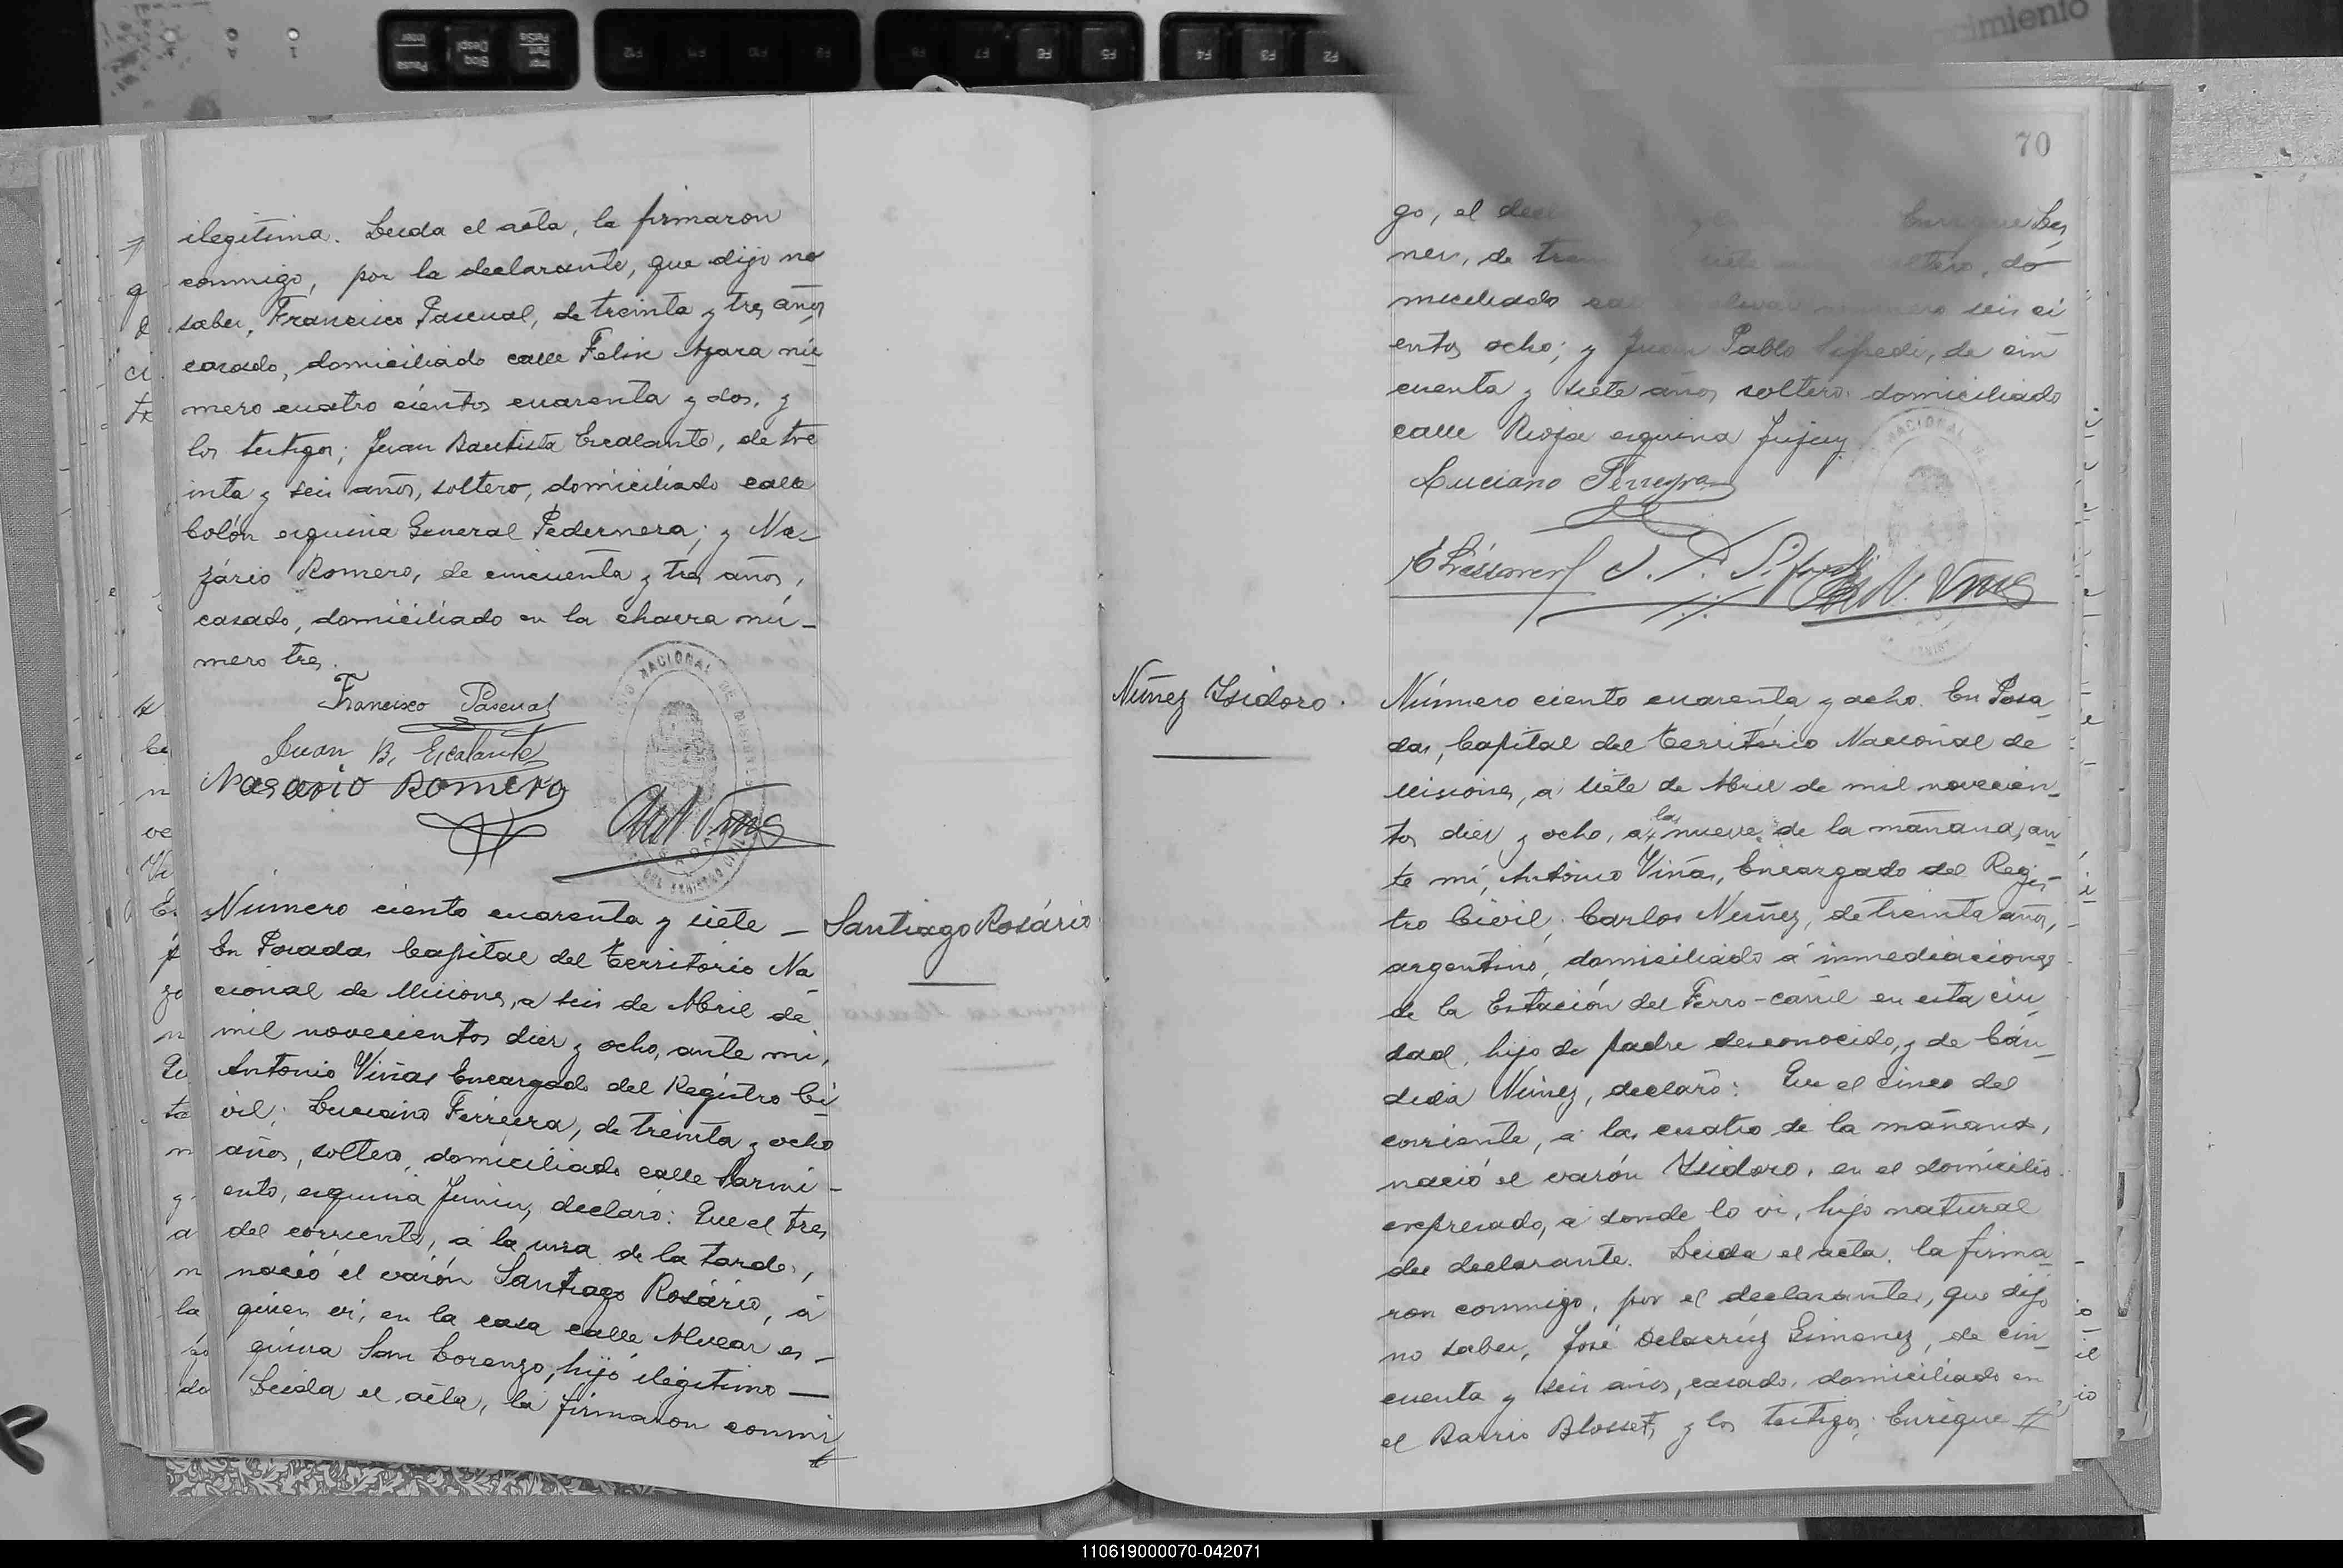 ilegítima. Leida el acta, la firmaron
conmigo, por la declarante, que dijo no
saber, Francisco Pascual, de treinta y tres años
casado, domiciliado calle Felix Azara nú
mero cuatro cientos cuarenta y dos, y
los testigos; Juan Bautista Escalante, de tre
inta y seis años, soltero, domiciliado calle
Colón esquina General Pedernera; y Na-
zário Romero, de cincuenta y tres años,
casado, domiciliado en la chacra nú-
mero tres.
Francisco Pascual
Juan B. Escalante
Nasario Romero
Número ciento cuarenta y siete —
Santiago Rosário
En Posadas Capital del Território Na
cional de Misiones, a seis de Abril de
mil novecientos diez y ocho, ante mi,
Antonio Viñas Encargado del Registro Ci
vil; Luciano Ferreera, de treinta y ocho
años, soltero, domiciliado calle Sarmi-
ento, esquina Junin, declaró: Que el tres
del corriente, a la una de la tarde,
nació el varón Santiago Rosário, á
quien vi, en la casa calle Alvear es-
quina San Lorenzo, hijo ilegitimo —
Leida el acta, la firmaron conmi
70
go, el
nes, de
miciliado seis ci
entos ocho; y Juan Pablo Sifredi, de cin
cuenta y siete años soltero, domiciliado
calle Rioja esquina Jujuy
Luciano Ferreyra
Núñez Isidoro.
Número ciento cuarenta y ocho. En Posa
das, Capital del Território Nacional de
Misiones, a siete de Abril de mil novecien-
tos diez y ocho, a las nueve de la mañana, an
te mí, Antonio Viñas, Encargado del Regis-
tro Civil, Carlos Nuñez, de treinta años,
argentino, domiciliado á inmediaciones
de la Estación del Ferro-carril en esta ciu
dad, hijo de padre desconocido, y de Cán-
dida Núñez, declaró: Que el cinco del
corriente, a las cuatro de la mañana,
nació el varón Isidoro, en el domicilio
expresado, a donde lo vi, hijo natural
del declarante. Leida el acta, la firma
ron conmigo, por el declarante, que dijo
no saber, José Delacrúz Gimenez, de cin-
cuenta y seis años, casado, domiciliado en
el Barrio Blosset, y los testigos, Enrique
110619000070-042071